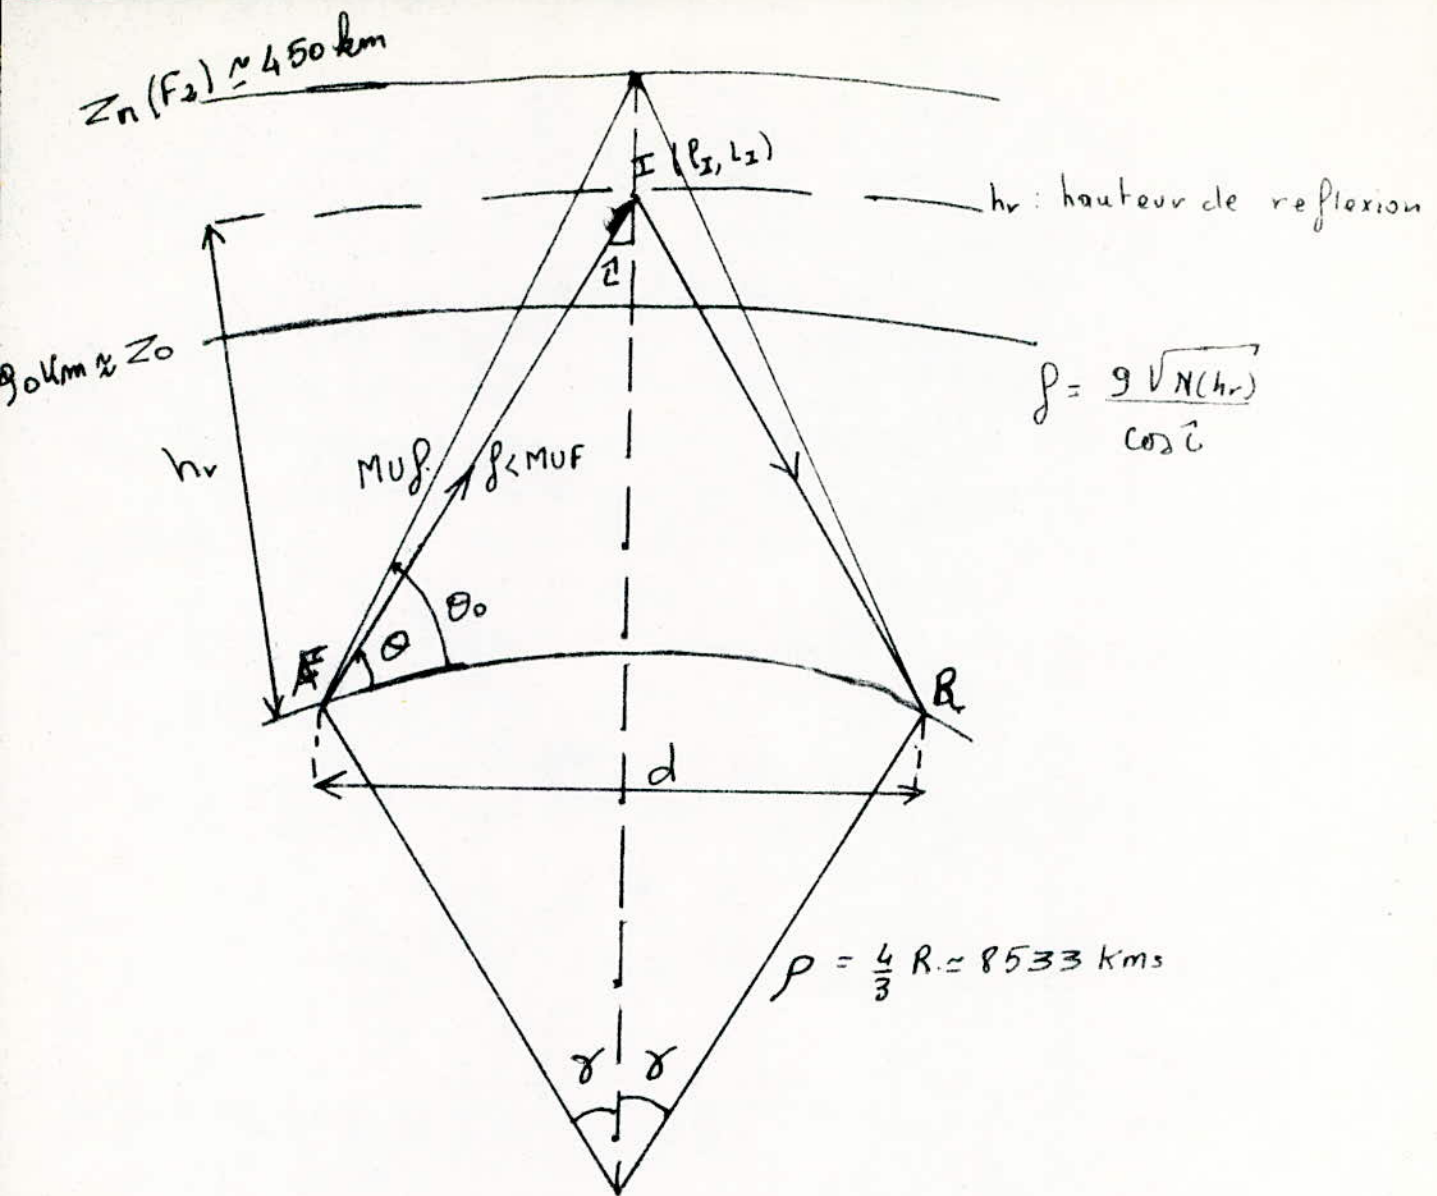 Zn (F2) ≃ 450 km
I (PI, LI)
hr : hauteur de reflexion
î
90 Km ≃ Z0
f = 9 √N(hr) / cos î
hr
MUf.
f < MUF
θ0
θ
R
d
ρ = 4/3 R. ≃ 8533 kms
γ γ